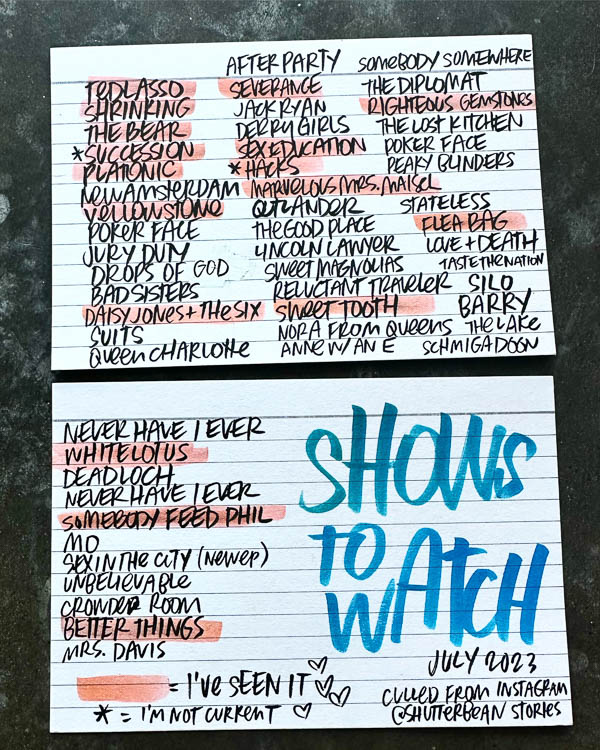 AFTER PARTY
SOMEBODY SOMEWHERE
TED LASSO
SHRINKING
THE BEAR
*SUCCESSION
PLATONIC
NEW AMSTERDAM
YELLOWSTONE
POKER FACE
JURY DUTY
DROPS OF GOD
BAD SISTERS
DAISY JONES + THE SIX
SUITS
QUEEN CHARLOTTE
SEVERANCE
JACK RYAN
DERRY GIRLS
SEX EDUCATION
*HACKS
MARVELOUS MRS. MAISEL
OUTLANDER
THE GOOD PLACE
LINCOLN LAWYER
SWEET MAGNOLIAS
RELUCTANT TRAVELER
SWEET TOOTH
NORA FROM QUEENS
ANNE W/ AN E
THE DIPLOMAT
RIGHTEOUS GEMSTONES
THE LOST KITCHEN
POKER FACE
PEAKY BLINDERS
STATELESS
FLEA BAG
LOVE + DEATH
TASTE THE NATION
SILO
BARRY
THE LAKE
SCHMIGADOON
NEVER HAVE I EVER
WHITE LOTUS
DEADLOCH
NEVER HAVE I EVER
SOMEBODY FEED PHIL
MO
SEX IN THE CITY (NEWER)
UNBELIEVABLE
CROWDED ROOM
BETTER THINGS
MRS. DAVIS
= I'VE SEEN IT
* = I'M NOT CURRENT
SHOWS
TO
WATCH
JULY 2023
CULLED FROM INSTAGRAM
@SHUTTERBEAN STORIES